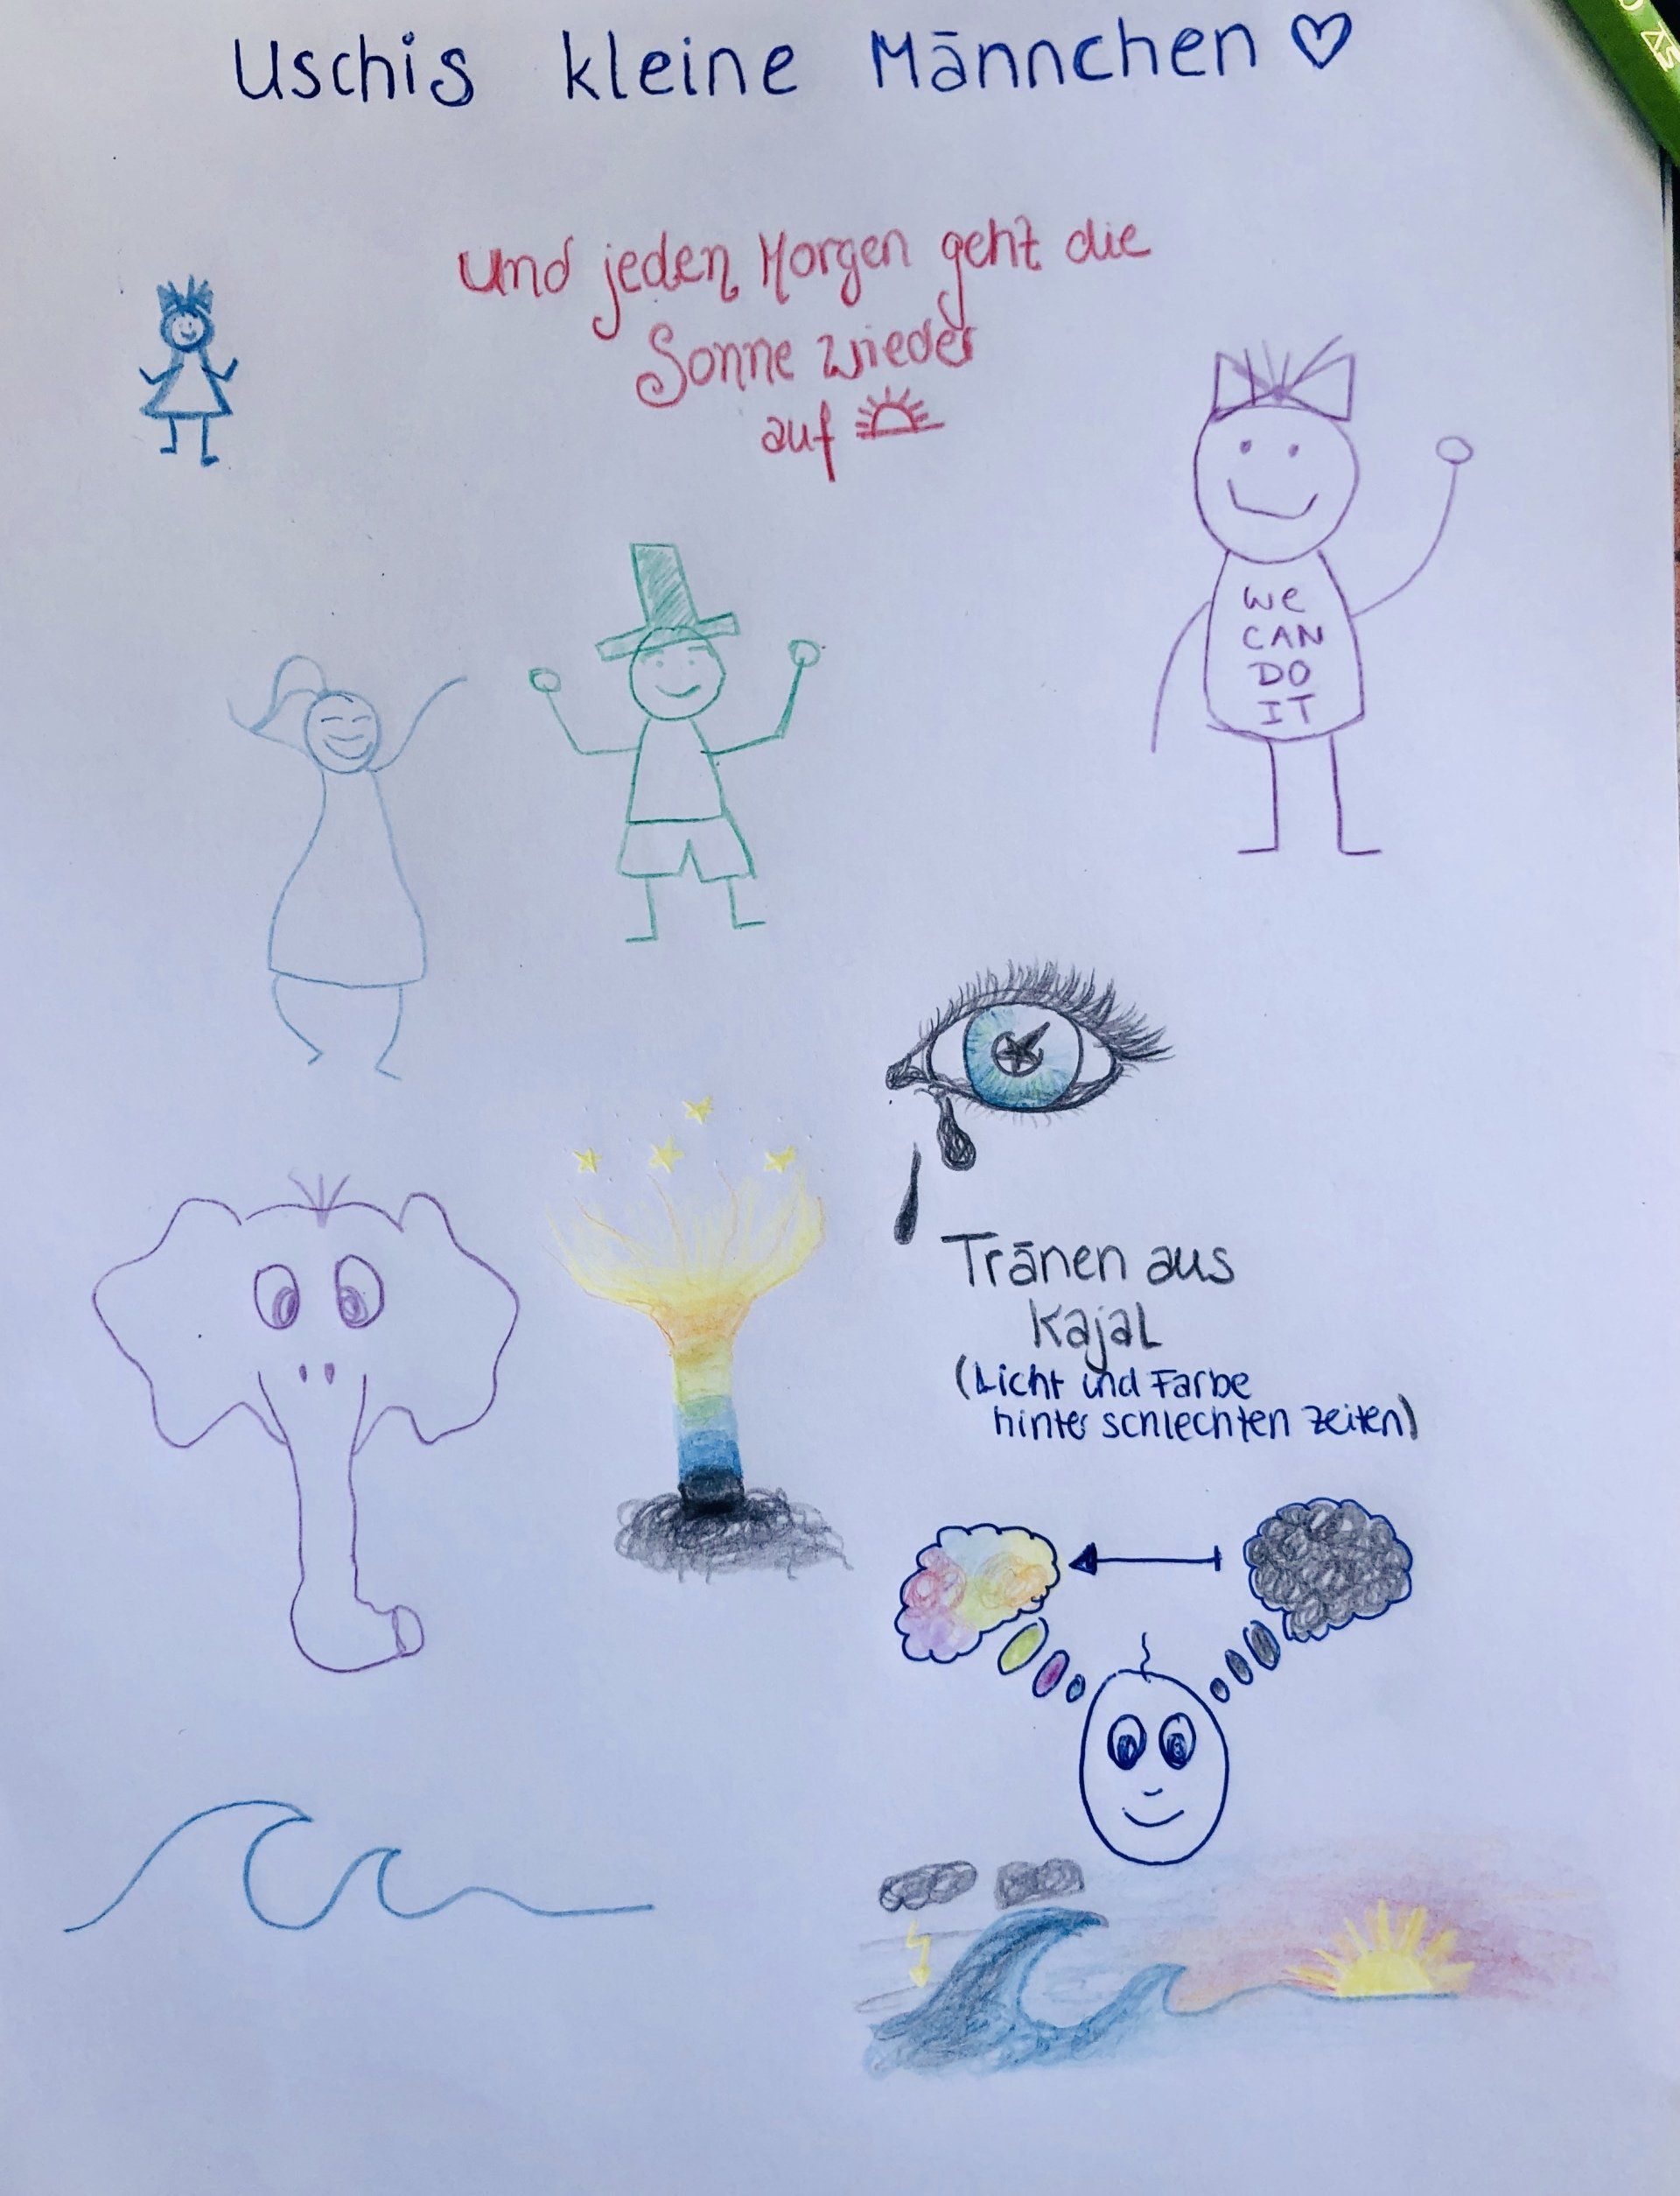 Uschis kleine Männchen ♡
und jeden Morgen geht die
Sonne wieder
auf
We
CAN
DO
IT
Tränen aus
Kajal
(Licht und Farbe
hinter schlechten Zeiten)